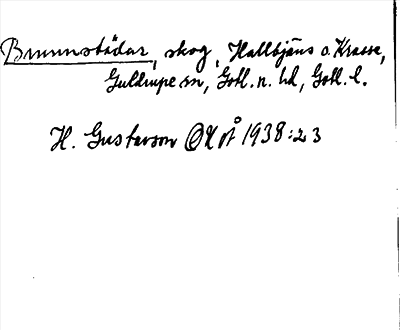 Brunnstädar, skog, Hallbjäns o. Krasse,
Guldrupe sn, Gotl. n. hd, Gotl. l.
H. Gustavson OÄ på 1938:23